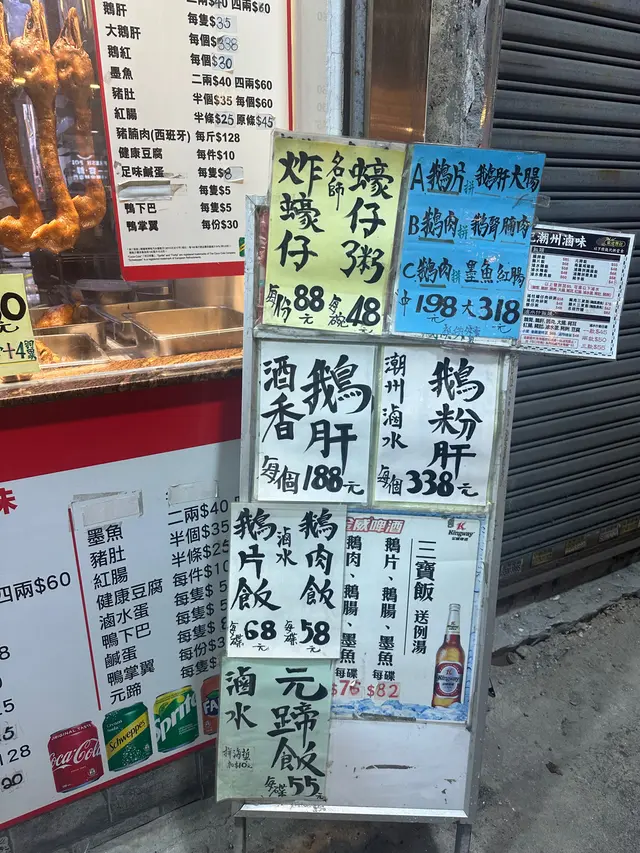 鵝肝 二兩$40 四兩$60
大鵝肝 每隻$35
鵝紅 每個$338
墨魚 每個$30
豬肚 二兩$40 四兩$60
紅腸 半個$35 每個$60
半條$25 原條$45
豬腩肉(西班牙) 每斤$128
健康豆腐 每件$10
足味鹹蛋 每隻$8
每隻$5
鴨下巴 每隻$5
鴨掌翼 每份$30
名師
蠔仔粥
每碗48元
炸蠔仔
每份88元
A鵝片拼鵝肝大腸
B鵝肉拼鵝腎腩肉
C鵝肉拼墨魚紅腸
中198大318元
潮州滷味
酒香
鵝肝
每個188元
潮州滷水
鵝粉肝
每個338元
滷水
鵝肉飯
每碟58元
鵝片飯
每碟68元
金威啤酒
Kingway
三寶飯 送例湯
鵝片、鵝腸、墨魚 每碟$82
鵝肉、鵝腸、墨魚 每碟$76
滷水
元蹄飯
每碟55元
元
+4
味
四兩$60
二兩$40
墨魚 半個$35
豬肚 半條$25
紅腸 每件$10
健康豆腐 每隻$
滷水蛋 每隻$
鴨下巴 每隻$
鹹蛋 每份$3
鴨掌翼 每隻$
元蹄
128
Coca-Cola
Schweppes
Sprite
FA